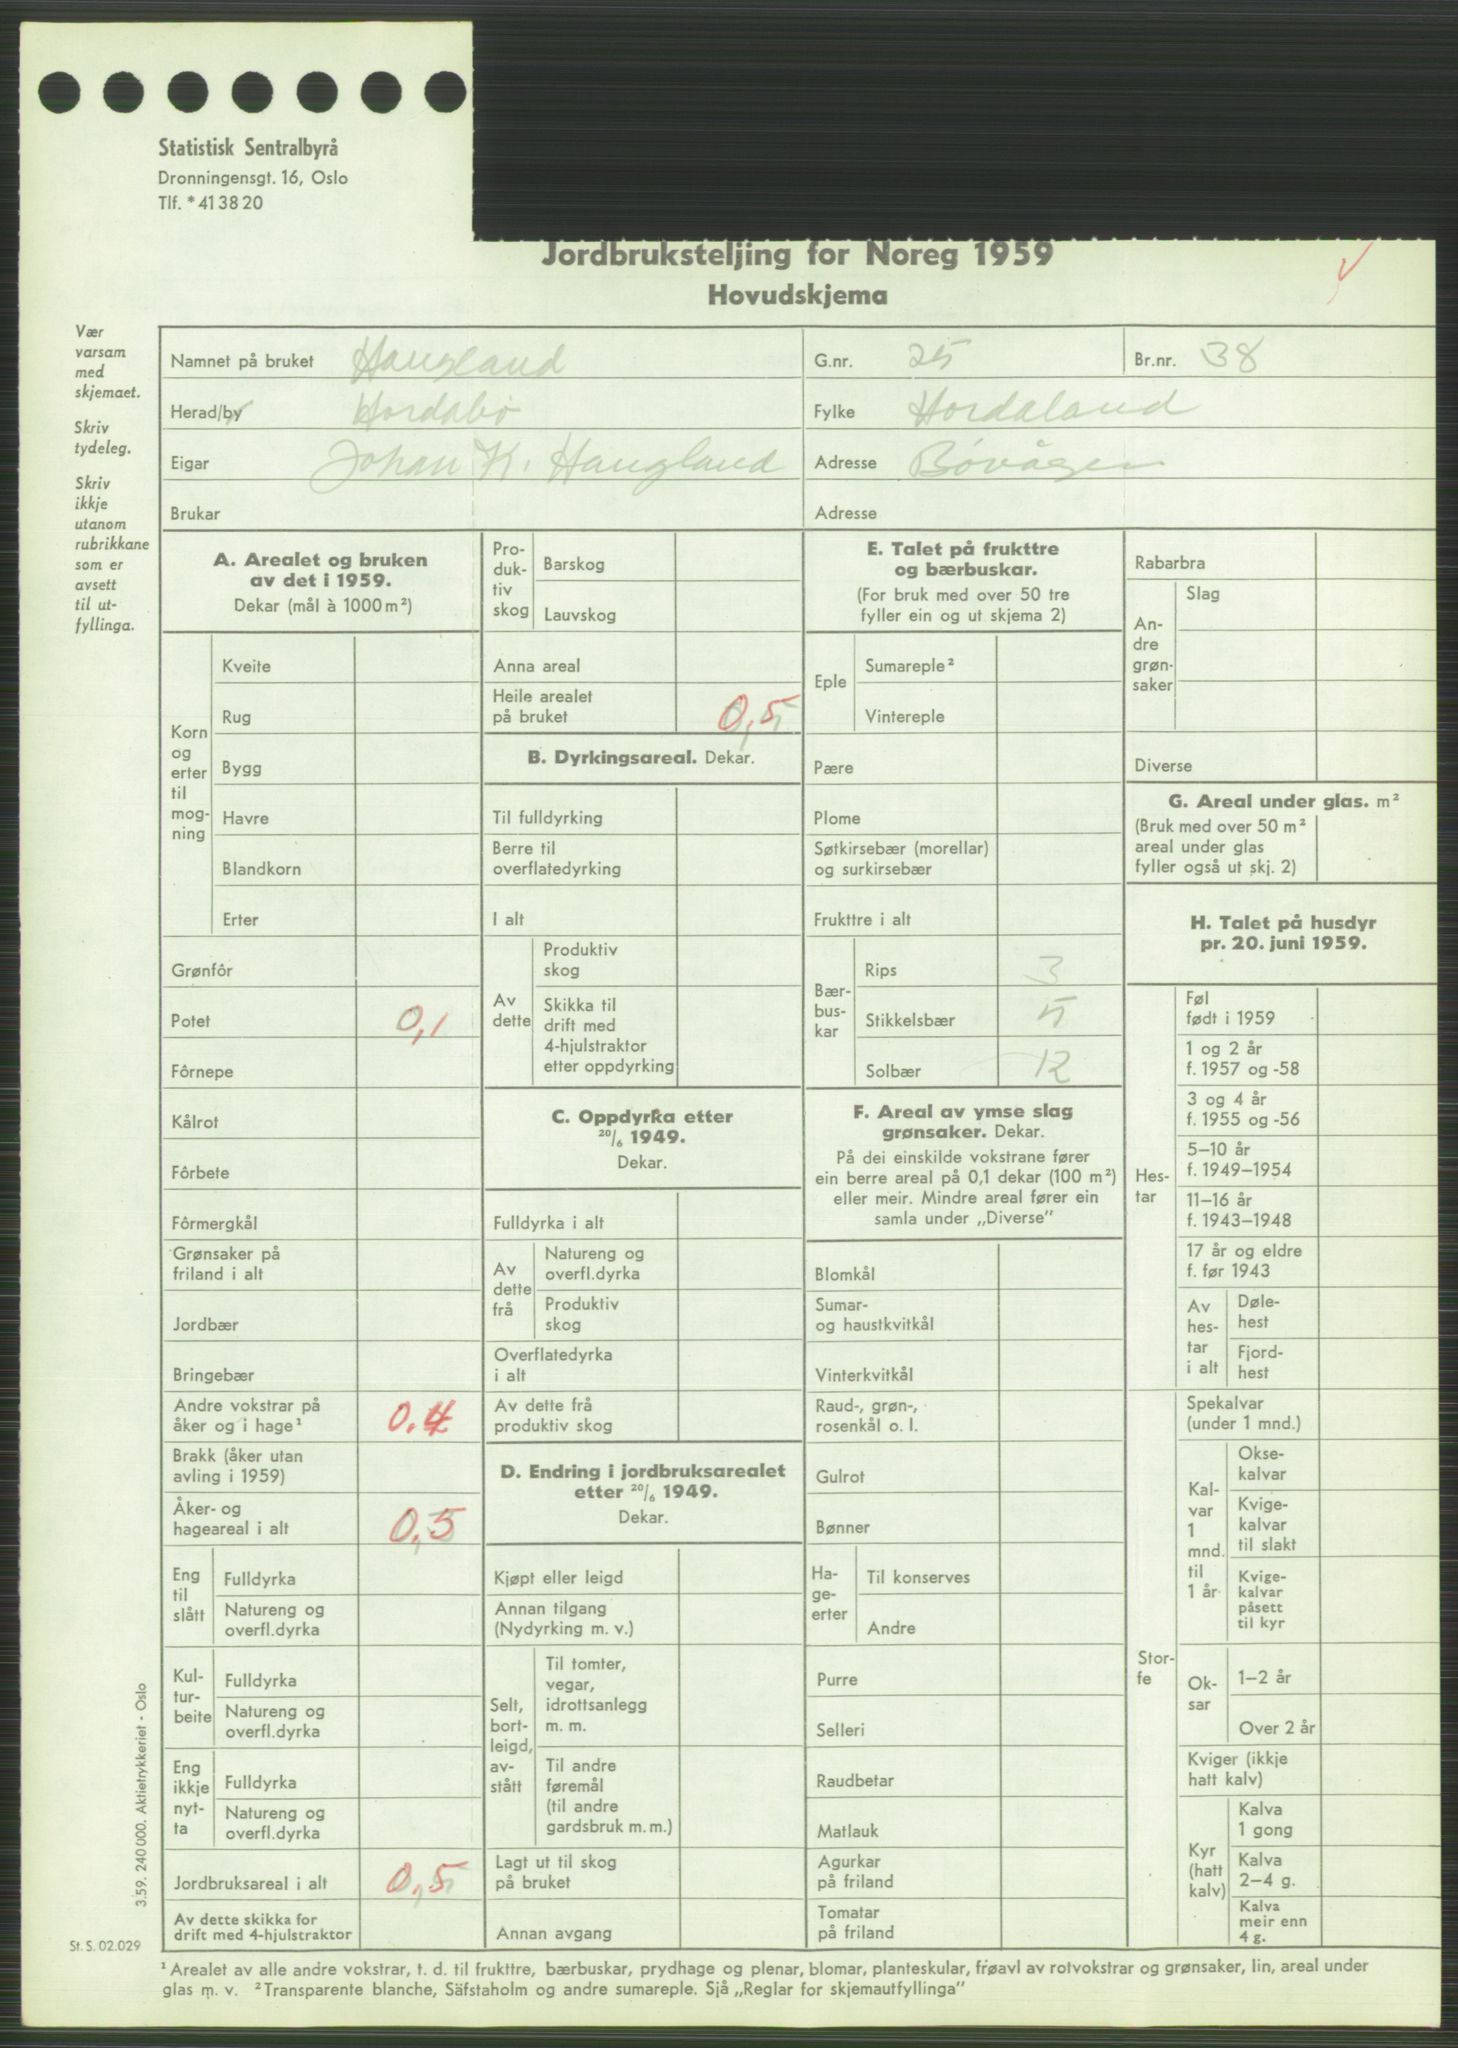 Statistisk Sentralbyrå
Dronningensgt. 16, Oslo
Tlf. * 41 38 20
Jordbruksteljing for Noreg 1959
Hovudskjema
Vær
varsam
med
skjemaet.
Skriv
tydeleg.
Skriv
ikkje
utanom
rubrikkane
som er
avsett
til ut-
fyllinga.
Namnet på bruket Haugland G.nr. 25 Br.nr. 38
Herad/by Hordabø Fylke Hordaland
Eigar Johan K. Haugland Adresse Bøvågen
Brukar Adresse
A. Arealet og bruken
av det i 1959.
Dekar (mål à 1000 m²)
Korn
og
erter
til
mog-
ning
Kveite
Rug
Bygg
Havre
Blandkorn
Erter
Grønfôr
Potet 0,1
Fôrnepe
Kålrot
Fôrbete
Fôrmergkål
Grønsaker på
friland i alt
Jordbær
Bringebær
Andre vokstrar på
åker og i hage¹ 0,4
Brakk (åker utan
avling i 1959)
Åker- og
hageareal i alt 0,5
Eng
til
slått
Fulldyrka
Natureng og
overfl.dyrka
Kul-
tur-
beite
Fulldyrka
Natureng og
overfl.dyrka
Eng
ikkje
nyt-
ta
Fulldyrka
Natureng og
overfl.dyrka
Jordbruksareal i alt 0,5
Av dette skikka for
drift med 4-hjulstraktor
Pro-
duk-
tiv
skog
Barskog
Lauvskog
Anna areal
Heile arealet
på bruket 0,5
B. Dyrkingsareal. Dekar.
Til fulldyrking
Berre til
overflatedyrking
I alt
Av
dette
Produktiv
skog
Skikka til
drift med
4-hjulstraktor
etter oppdyrking
C. Oppdyrka etter
20/6 1949.
Dekar.
Fulldyrka i alt
Av
dette
frå
Natureng og
overfl.dyrka
Produktiv
skog
Overflatedyrka
i alt
Av dette frå
produktiv skog
D. Endring i jordbruksarealet
etter 20/6 1949.
Dekar.
Kjøpt eller leigd
Annan tilgang
(Nydyrking m. v.)
Selt,
bort-
leigd,
av-
stått
Til tomter,
vegar,
idrottsanlegg
m. m.
Til andre
føremål
(til andre
gardsbruk m. m.)
Lagt ut til skog
på bruket
Annan avgang
E. Talet på frukttre
og bærbuskar.
(For bruk med over 50 tre
fyller ein og ut skjema 2)
Eple
Sumareple²
Vintereple
Pære
Plome
Søtkirsebær (morellar)
og surkirsebær
Frukttre i alt
Bær-
bus-
kar
Rips 3
Stikkelsbær 5
Solbær 12
F. Areal av ymse slag
grønsaker. Dekar.
På dei einskilde vokstrane fører
ein berre areal på 0,1 dekar (100 m²)
eller meir. Mindre areal fører ein
samla under „Diverse”
Blomkål
Sumar-
og haustkvitkål
Vinterkvitkål
Raud-, grøn-,
rosenkål o. l.
Gulrot
Bønner
Ha-
ge-
erter
Til konserves
Andre
Purre
Selleri
Raudbetar
Matlauk
Agurkar
på friland
Tomatar
på friland
Rabarbra
An-
dre
grøn-
saker
Slag
Diverse
G. Areal under glas. m²
(Bruk med over 50 m²
areal under glas
fyller også ut skj. 2)
H. Talet på husdyr
pr. 20. juni 1959.
Hes-
tar
Føl
født i 1959
1 og 2 år
f. 1957 og -58
3 og 4 år
f. 1955 og -56
5–10 år
f. 1949–1954
11–16 år
f. 1943–1948
17 år og eldre
f. før 1943
Av
hes-
tar
i alt
Døle-
hest
Fjord-
hest
Stor-
fe
Spekalvar
(under 1 mnd.)
Kal-
var
1
mnd.
til
1 år
Okse-
kalvar
Kvige-
kalvar
til slakt
Kvige-
kalvar
påsett
til kyr
Ok-
sar
1–2 år
Over 2 år
Kviger (ikkje
hatt kalv)
Kyr
(hatt
kalv)
Kalva
1 gong
Kalva
2–4 g.
Kalva
meir enn
4 g.
3.59. 240 000. Aktietrykkeriet - Oslo
St. S. 02.029
¹ Arealet av alle andre vokstrar, t. d. til frukttre, bærbuskar, prydhage og plenar, blomar, planteskular, frøavl av rotvokstrar og grønsaker, lin, areal under
glas m. v. ² Transparente blanche, Säfstaholm og andre sumareple. Sjå „Reglar for skjemautfyllinga”